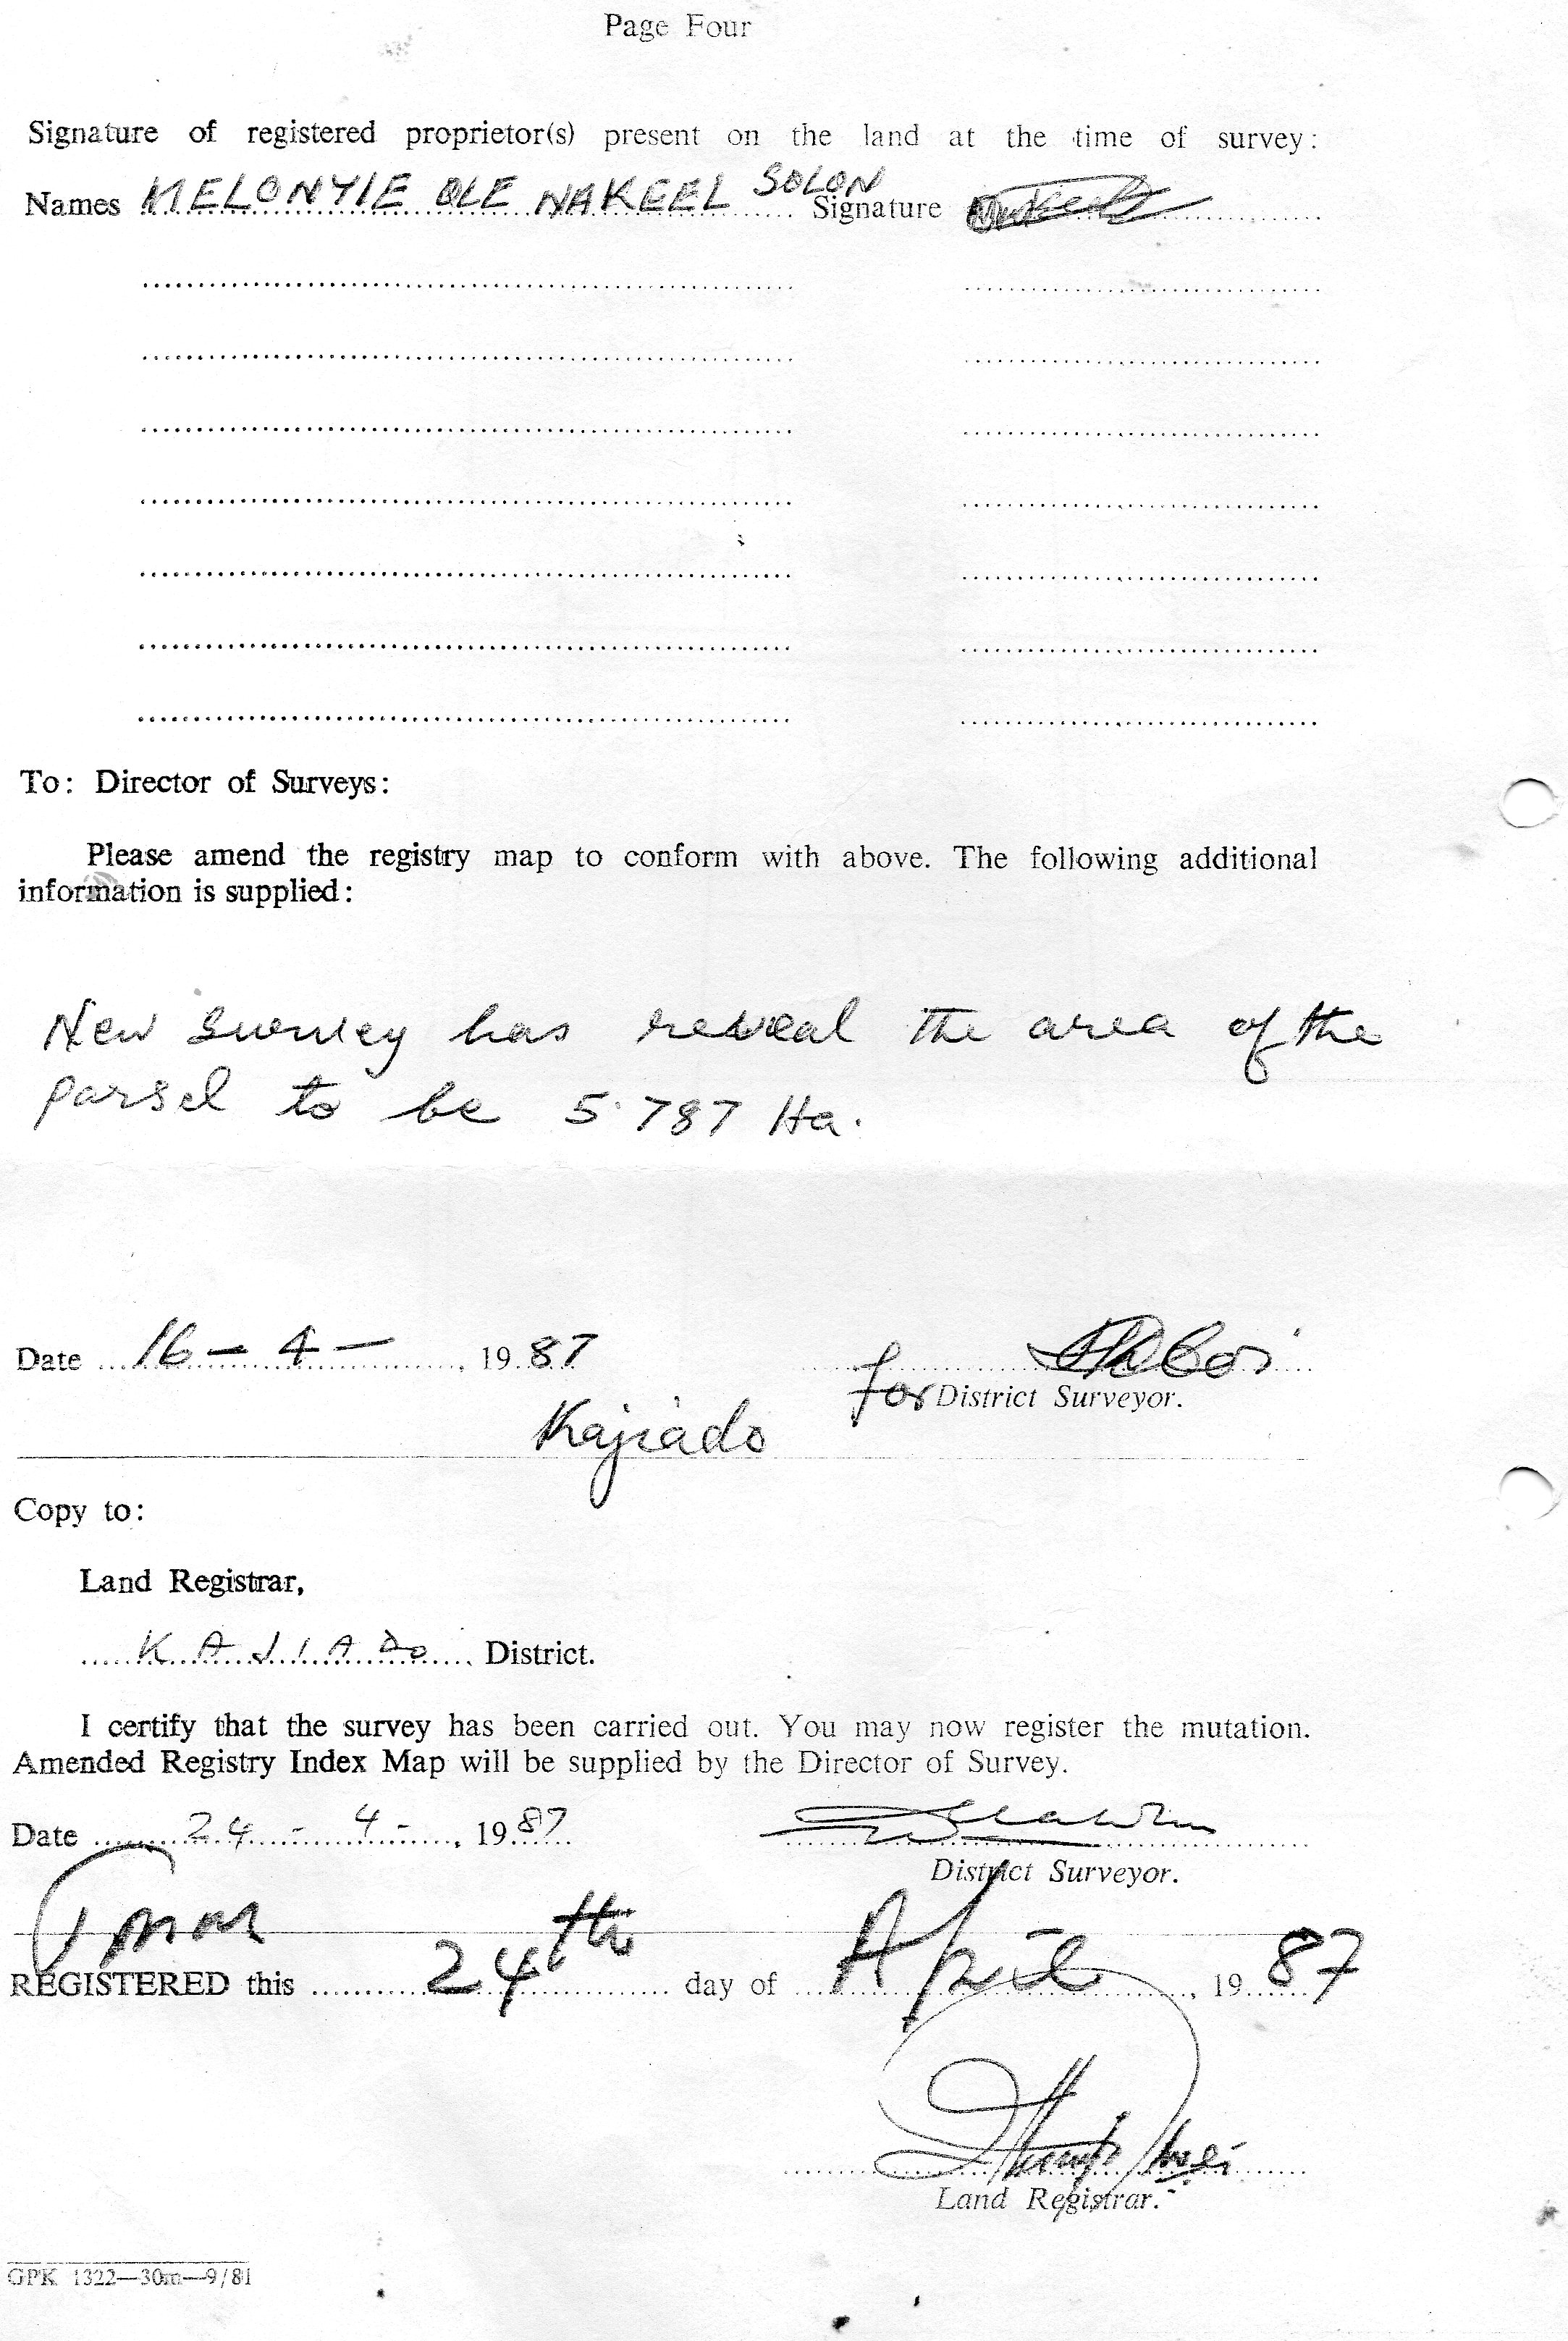 Page Four
Signature of registered proprietor(s) present on the land at the time of survey:
Names MELONYIE OLE NAKEEL SOLON Signature
To: Director of Surveys:
Please amend the registry map to conform with above. The following additional
information is supplied:
New survey has reveal the area of the
parsel to be 5.787 Ha.
Date 16 - 4 - , 19 87
for District Surveyor.
Kajiado
Copy to:
Land Registrar,
KAJIADO District.
I certify that the survey has been carried out. You may now register the mutation.
Amended Registry Index Map will be supplied by the Director of Survey.
Date 24 - 4 - , 19 87
District Surveyor.
REGISTERED this 24th day of April , 19 87
Land Registrar.
GPK 1322—30m—9/81